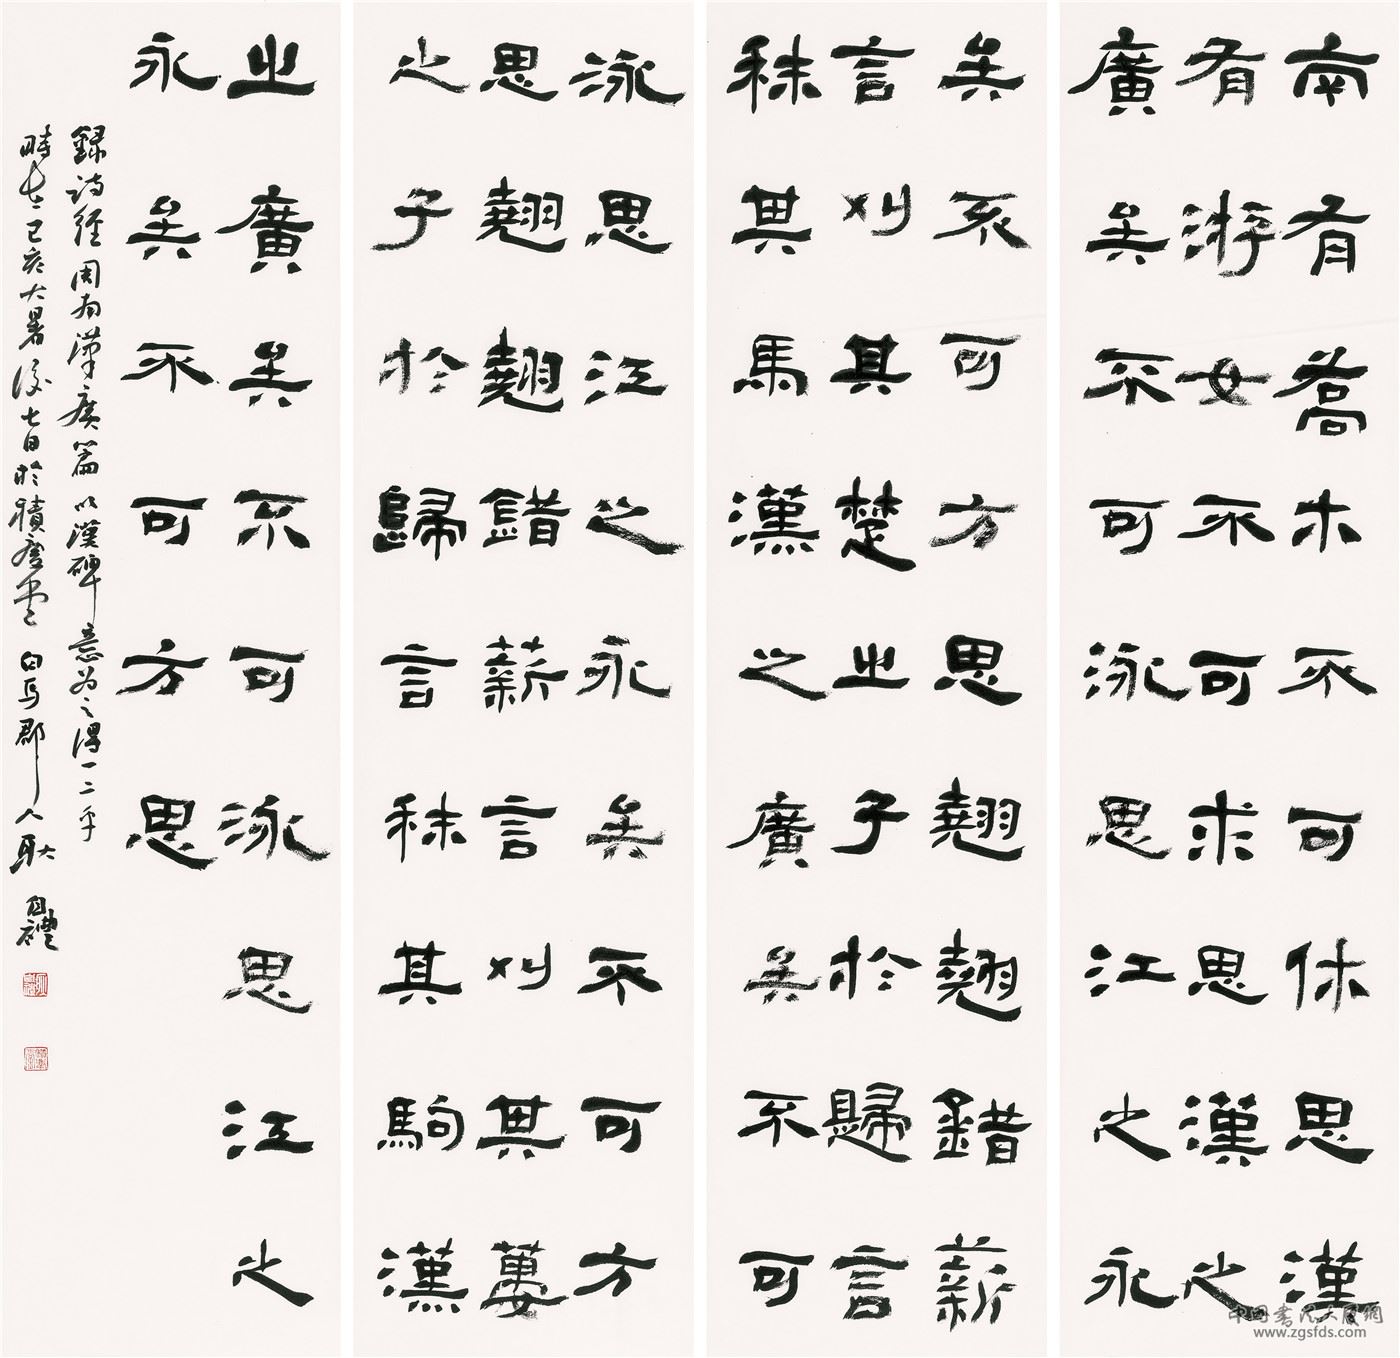 南有喬木不可休思漢
有游女不可求思漢之
廣矣不可泳思江之永
矣不可方思翹翹錯薪
言刈其楚之子於歸言
秣其馬漢之廣矣不可
泳思江之永矣不可方
思翹翹錯薪言刈其蔞
之子於歸言秣其駒漢
之廣矣不可泳思江之
永矣不可方思
錄詩經周南漢廣篇以漢碑意為之得一二乎
時在己亥大暑後七日於積堂白馬郡人耿自禮
中国书法大展網
www.zgsfds.com